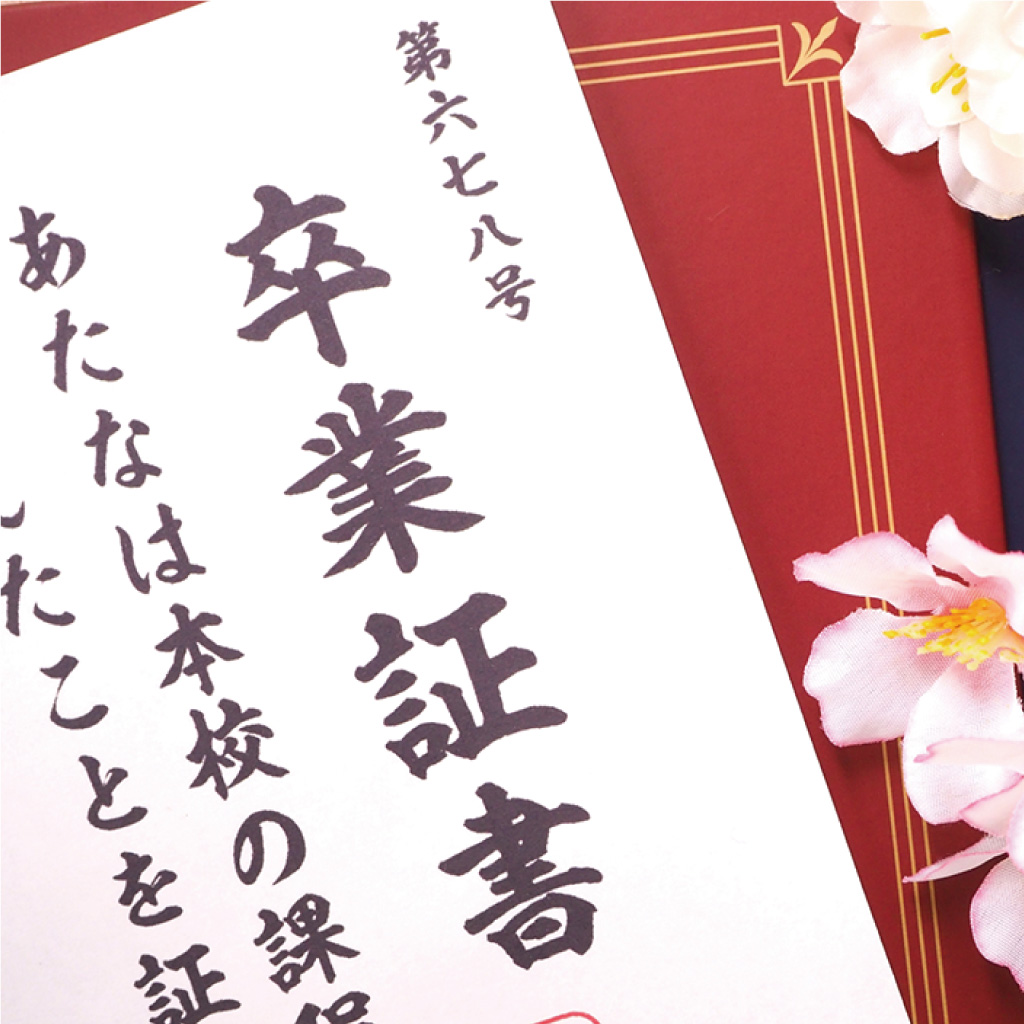 第六七八号
卒業証書
あたなは本校の課
たことを証